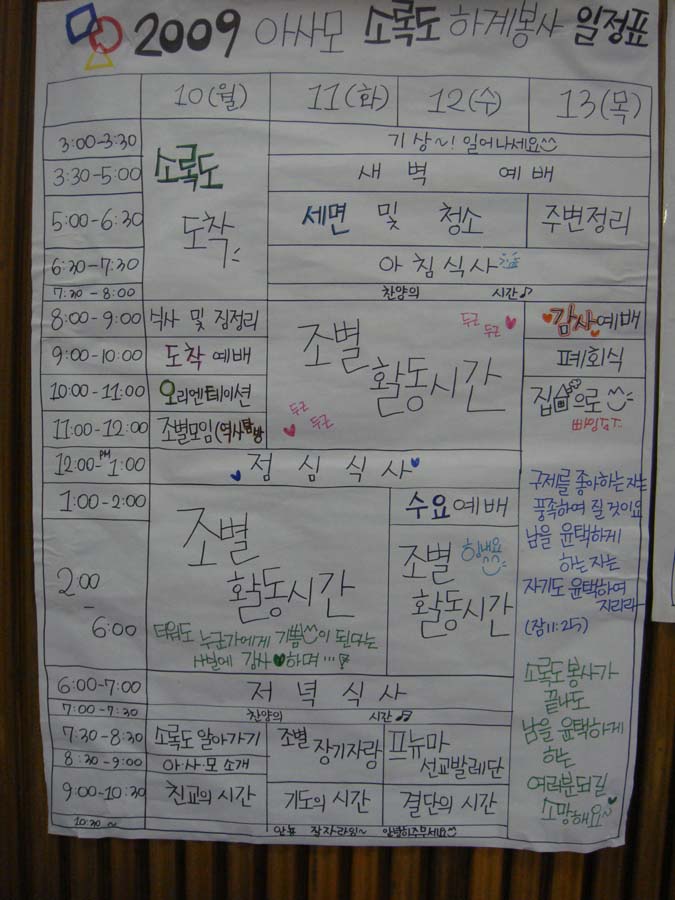 2009 아사모 소록도 하계봉사 일정표
10(월) 11(화) 12(수) 13(목)
3:00-3:30 기상~! 일어나세요
3:30-5:00 소록도 새벽 예배
5:00-6:30 도착 세면 및 청소 주변정리
6:30-7:30 아침식사
7:30-8:00 찬양의 시간♪
8:00-9:00 식사 및 짐정리 조별 활동시간 두근두근 감사예배
9:00-10:00 도착예배 폐회식
10:00-11:00 오리엔테이션 집으로
11:00-12:00 조별모임(역사탐방 두근두근
12:00-PM1:00 점심식사
1:00-2:00 조별 활동시간 수요예배
2:00-6:00 조별 활동시간 힘내요
더워도 누군가에게 기쁨이 된다는
사실에 감사♥하며...
구제를 좋아하는자는
풍족하여 질 것이요
남을 윤택하게
하는자는
자기도 윤택하여
지리라
(잠11:25)
6:00-7:00 저녁식사
7:00-7:30 찬양의 시간♫
7:30-8:30 소록도 알아가기 조별 장기자랑 프뉴마 선교발레단
8:30-9:00 아·사·모 소개
9:00-10:30 친교의 시간 기도의 시간 결단의 시간
10:30~ 안녕히주무세요
소록도봉사가
끝나도
남을 윤택하게
하는
여러분되길
소망해요~